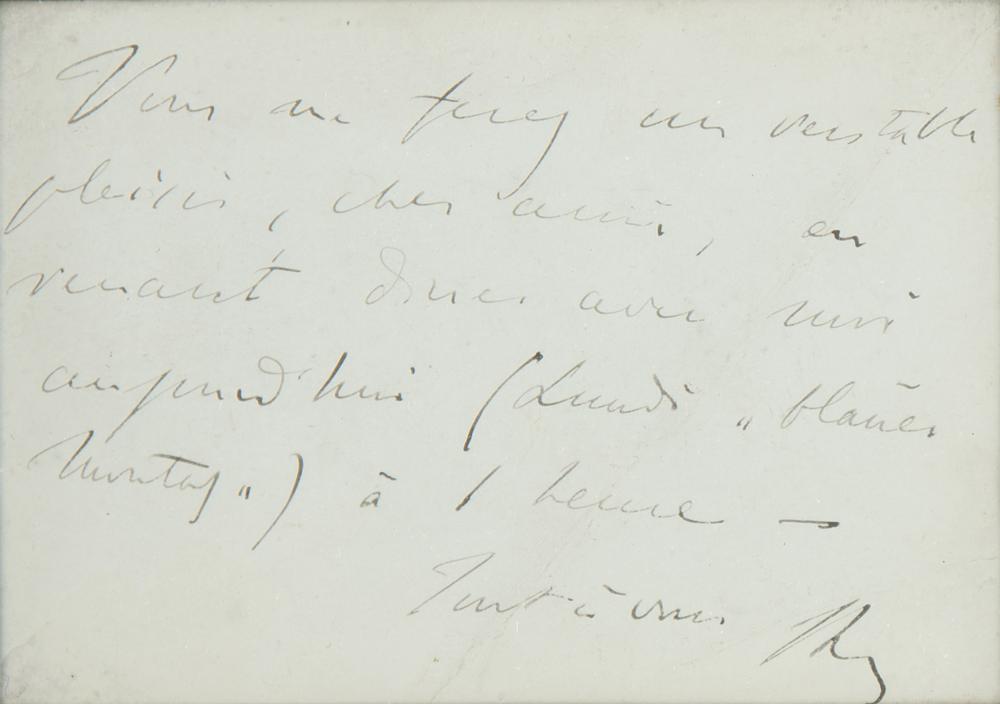 Vous me ferez un veritable
plaisir, cher ami, en
venant diner avec moi
aujourd'hui (Lundi „blauer
Montag") à 1 heure —
Tout à vous